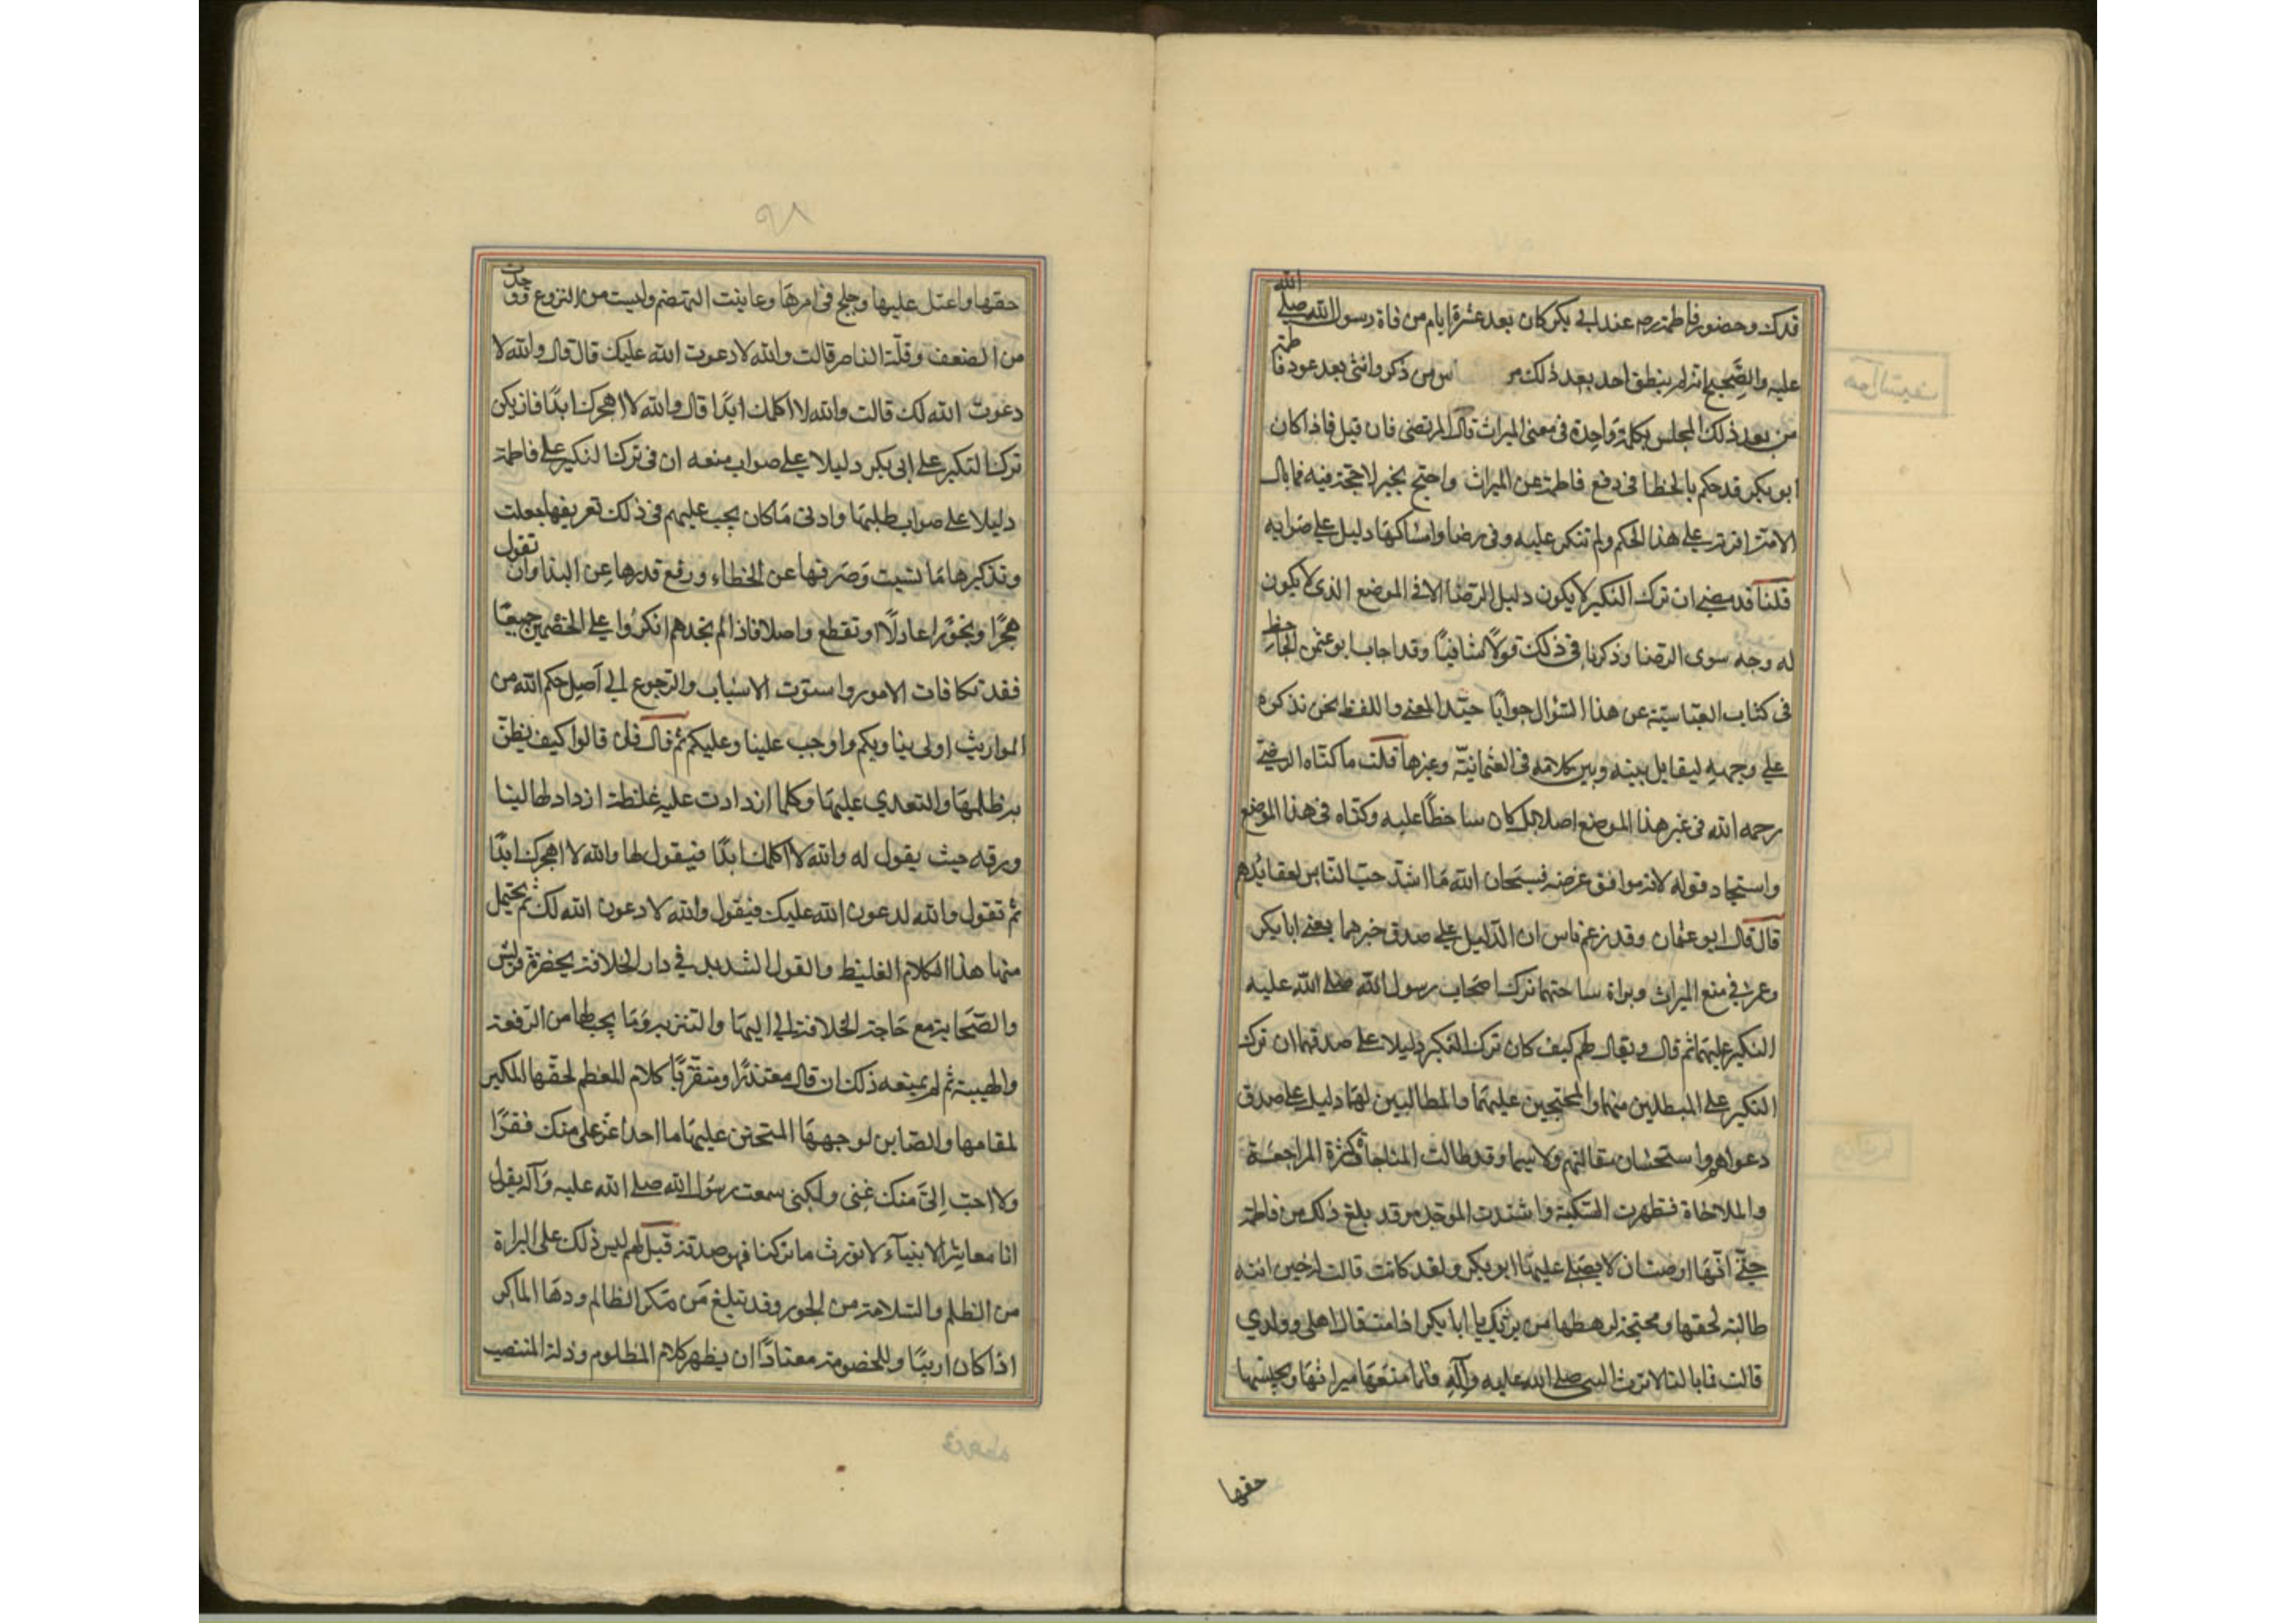 فدك وحضور فاطمة رضه عند ابى بكر كان بعد عشرة ايام من فاة رسول الله صلى الله
عليه والصحيح انه لم ينطق احد بعد ذلك من ذكر وانثى بعد عود فاطمة
من بعد ذلك المجلس بكلمة واحدة فى معنى الميراث قال المرتضى فان قيل فاذا كان
ابو بكر قد حكم بالخطا فى دفع فاطمة عن الميراث واحتج بخبر لا حجة فيه فما بال
الامة اقرته على هذا الحكم ولم تنكر عليه وفى رضا وامساكها دليل على صوابه
قلنا قد مضى ان ترك النكير لا يكون دليل الرضا الا فى الموضع الذى لا يكون
له وجه سوى الرضا وذكرنا فى ذلك قولا شافيا وقد اجاب ابو عثمن الجاحظ
فى كتاب العباسية عن هذا السؤال جوابا جيد المعنى واللفظ نحن نذكره
على وجهه ليقابل بينه وبين كلامه فى العثمانية وغيرها قلت ما كناه المرتضى
رحمه الله فى غير هذا الموضع اصلا بل كان ساخطا عليه وكناه فى هذا الموضع
واستجاد قوله لانه موافق غرضه فسبحان الله ما اشد حب الناس لعقايدهم
قال قال ابو عثمان وقد زعم ناس ان الدليل على صدق خبرهما يعنى ابا بكر
وعمر فى منع الميراث وبراة ساحتهما ترك اصحاب رسول الله صلى الله عليه
النكير عليهما ثم قال ويقال لهم كيف كان ترك النكير دليلا على صدقهما ان ترك
النكير على المتظلمين منهما والمحتجين عليهما والمطالبين لهما دليل على صدق
دعواهم واستحسان مقالتهم ولا سيما وقد طالت المناجاة وكثرة المراجعة
والملاحاة فظهرت الشكية واشتدت الموجدة وقد بلغ ذلك من فاطمة
حتى انها اوصت ان لا يصلى عليها ابو بكر ولقد كانت قالت له حين اتته
طالبة لحقها ومحتجة لرهطها من يرثك يا ابا بكر اذا مت قال اهلى وولدي
قالت فما بالنا لا نرث النبى صلى الله عليه وآله فلما منعها ميراثها وبخسها
حقها
٩٨
حقها واعتل عليها وجلح فى امرها وعاينت التهضم وايست من النزوع ووجدت
من الضعف وقلة الناصر قالت والله لادعوت الله عليك قال قال والله لا
دعوت الله لك قالت والله لا اكلمك ابدا قال والله لا اهجرك ابدا فان يكن
ترك النكير على ابى بكر دليلا على صواب منعه ان فى ترك النكير على فاطمة
دليلا على صواب طلبها وادنى ما كان يجب عليهم فى ذلك تعريفها ما جهلت
وتذكيرها ما نسيت وصرفها عن الخطاء ورفع قدرها عن البذا وان تقول
هجرا وتجور عادلا او تقطع واصلا فاذا لم نجدهم انكروا على الخصمين جميعا
فقد تكافات الامور واستوت الاسباب والرجوع الى اصل حكم الله من
المواريث اولى بنا وبكم واوجب علينا وعليكم ثم قال فان قالوا كيف يظن
به ظلمها والتعدي عليها وكلما ازدادت عليه غلظة ازداد لها لينا
ورقه حيث يقول له والله لا اكلمك ابدا فيقول لها والله لا اهجرك ابدا
ثم تقول والله لدعون الله عليك فيقول والله لا دعون الله لك ثم يحتمل
منها هذا الكلام الغليظ والقول الشديد في دار الخلافة بحضرة قريش
والصحابة مع حاجة الخلافة الى البها والتنزيه وما يجب لها من الرفعة
والهيبة ثم لم يمنعه ذلك ان قال معتذرا ومتقربا كلام المعظم لحقها المكبر
لمقامها والصاين لوجهها المتحنن عليها ما احد اعز على منك فقرا
ولا احب الى منك غنى ولكنى سمعت رسول الله صلى الله عليه وآله يقول
انا معاشر الانبيآء لا نورث ما تركنا فهو صدقة قيل لهم ليس ذلك على البراة
من الظلم والسلامة من الجور وقد تبلغ من مكر الظالم ودها الماكر
اذا كان اريبا وللخصومة معتادا ان يظهر كلام المظلوم وذلة المنتصب